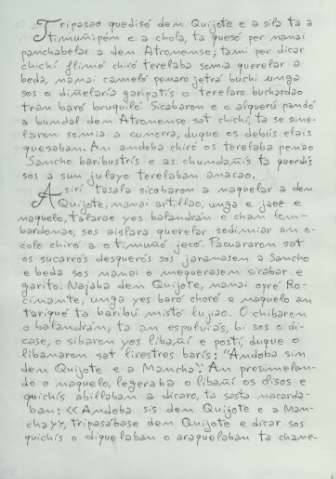 Tripasao quedisó dem Quijote e a sila ta a
timuñipén e a chola, ta queso per manai
panchabelar a dem Atronense; tami per dicar
chichí flimé chiró terelaba semia querelar a
beda, manai cameló penaro jetrá buchi unga
sos o diñelaría garipatís o terelaro buchardao
tran baró bruquiló. Sicabaron e o alquerú pandó
a bundal dem Atronense sat chichí, ta se sine-
laron semia a cumorra, duque os debús elais
quesaban. An andoba chiró os terelaba penao
Sancho baribustrís e as chundañís ta
sos a sun julayo terelaban anacao.
Asirí tasala sicobaron a maquelar a dem
Quijote, manai artillao, unga e jaez e
naquelo, talarae yos balandrán e chan
bardenao, sos aislara querelar sodinniar an e-
cole chiró a o timuñó jecó. Tacuararon sat
os sucarrós desquerós sos jaranasen a Sancho
e beda sos manai o mequerasen sicobar e
garito. Najaba dem Quijote, manai opré Ro-
cinante, unga yes baró choré e naquelo an
tarique ta baribú mistó lujiao. O chibaron
o balandrán, ta an espuluias, bi sos o di-
case, o sibaron yos libañí e postí, duque o
libanaron sat lirestres barís: "Andoba sin
dem Quijote e a Mancha". An presimelan-
do o naquelo, legeraba o libañí os olisos e
quichís abillaban a dicaro, ta sasta nacarda-
ban: << Andoba sis dem Quijote e a Man-
cha>>, tripasabase dem Quijote e dicar sos
quichís o diquelaban o araquelaban ta chane-